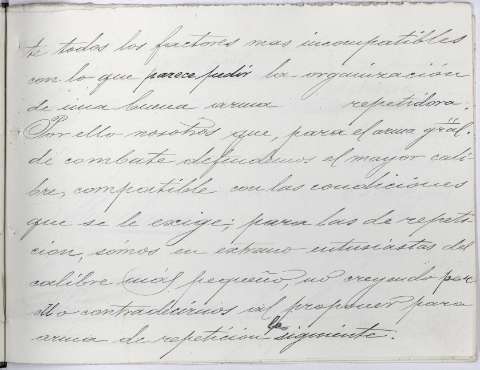 te todos los factores mas incompatibles
con lo que parece pedir la organización
de una buena arma repetidora.
Por ello nosotros que, para el arma gral.
de combate defendemos el mayor cali
bre, compatible con las condiciones
que se le exige; para las de repeti
cion, sómos en extremo entusiastas del
calibre más pequeño, no creyendo por
ello contradecirnos al proponer para
arma de repeticion la siguiente.